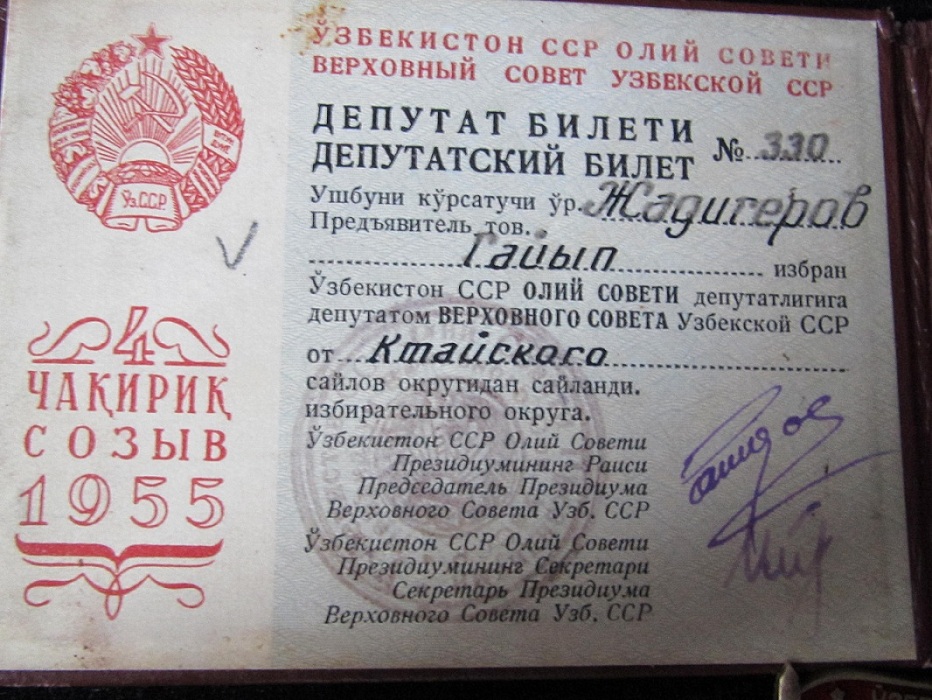 Ўз.С.С.Р.
4
ЧАҚИРИҚ
СОЗЫВ
1955
ЎЗБЕКИСТОН ССР ОЛИЙ СОВЕТИ
ВЕРХОВНЫЙ СОВЕТ УЗБЕКСКОЙ ССР
ДЕПУТАТ БИЛЕТИ
ДЕПУТАТСКИЙ БИЛЕТ № 330
Ушбуни кўрсатучи ўр. Жадигеров
Предъявитель тов.
Гайып избран
Ўзбекистон ССР ОЛИЙ СОВЕТИ депутатлигига
депутатом ВЕРХОВНОГО СОВЕТА Узбекской ССР
от Ктайского
сайлов округидан сайланди.
избирательного округа.
Ўзбекистон ССР Олий Совети
Президиумининг Раиси
Председатель Президиума
Верховного Совета Узб. ССР
Ўзбекистон ССР Олий Совети
Президиумининг Секретари
Секретарь Президиума
Верховного Совета Узб. ССР